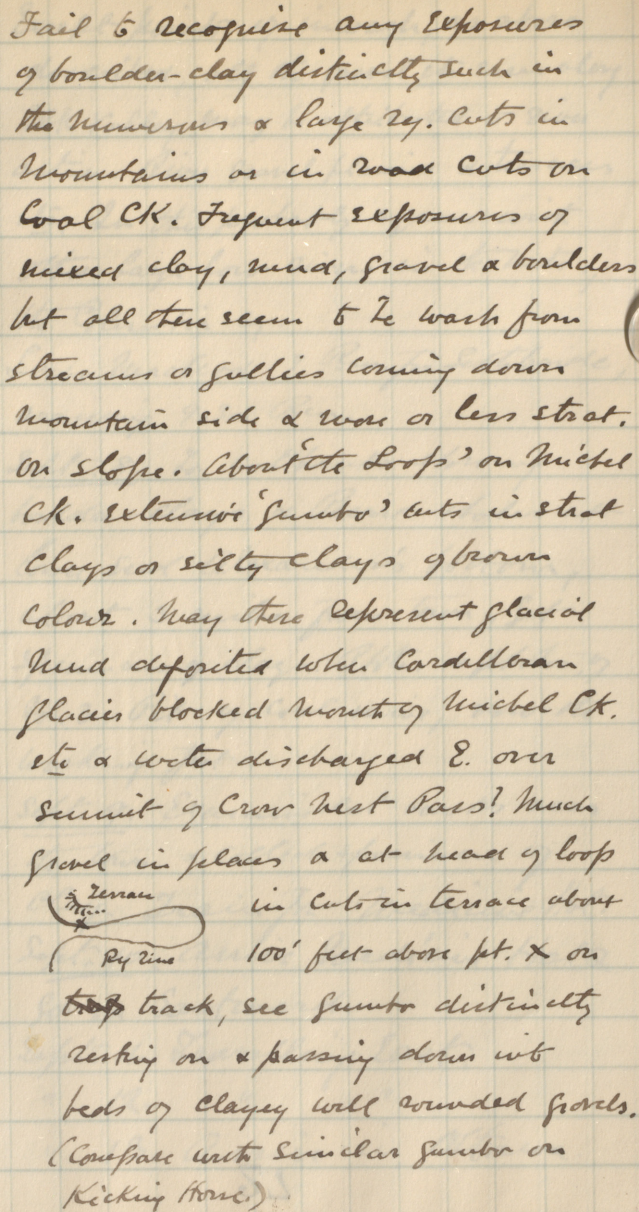 Fail to recognise any exposures
of boulder-clay distinctly such in
the numerous & large ry. cuts in
mountains or in road cuts on
Coal Ck. Frequent exposures of
mixed clay, mud, gravel & boulders
but all these seem to be wash from
streams or gullies coming down
mountain side & more or less strat.
on slope. About 'the Loop' on Michel
Ck. extensive 'gumbo' cuts in strat
clays or silty clays of brown
colour. May these represent glacial
mud deposited when Cordilleran
glacier blocked mouth of Michel Ck.
etc & water discharged E. over
summit of Crow Nest Pass? Much
gravel in places & at head of loop
Terrace
in cuts in terrace about
Ry line
100' feet above pt. x on
track, see gumbo distinctly
resting on & passing down into
beds of clayey well rounded gravels.
(Compare with similar gumbo on
Kicking Horse.)